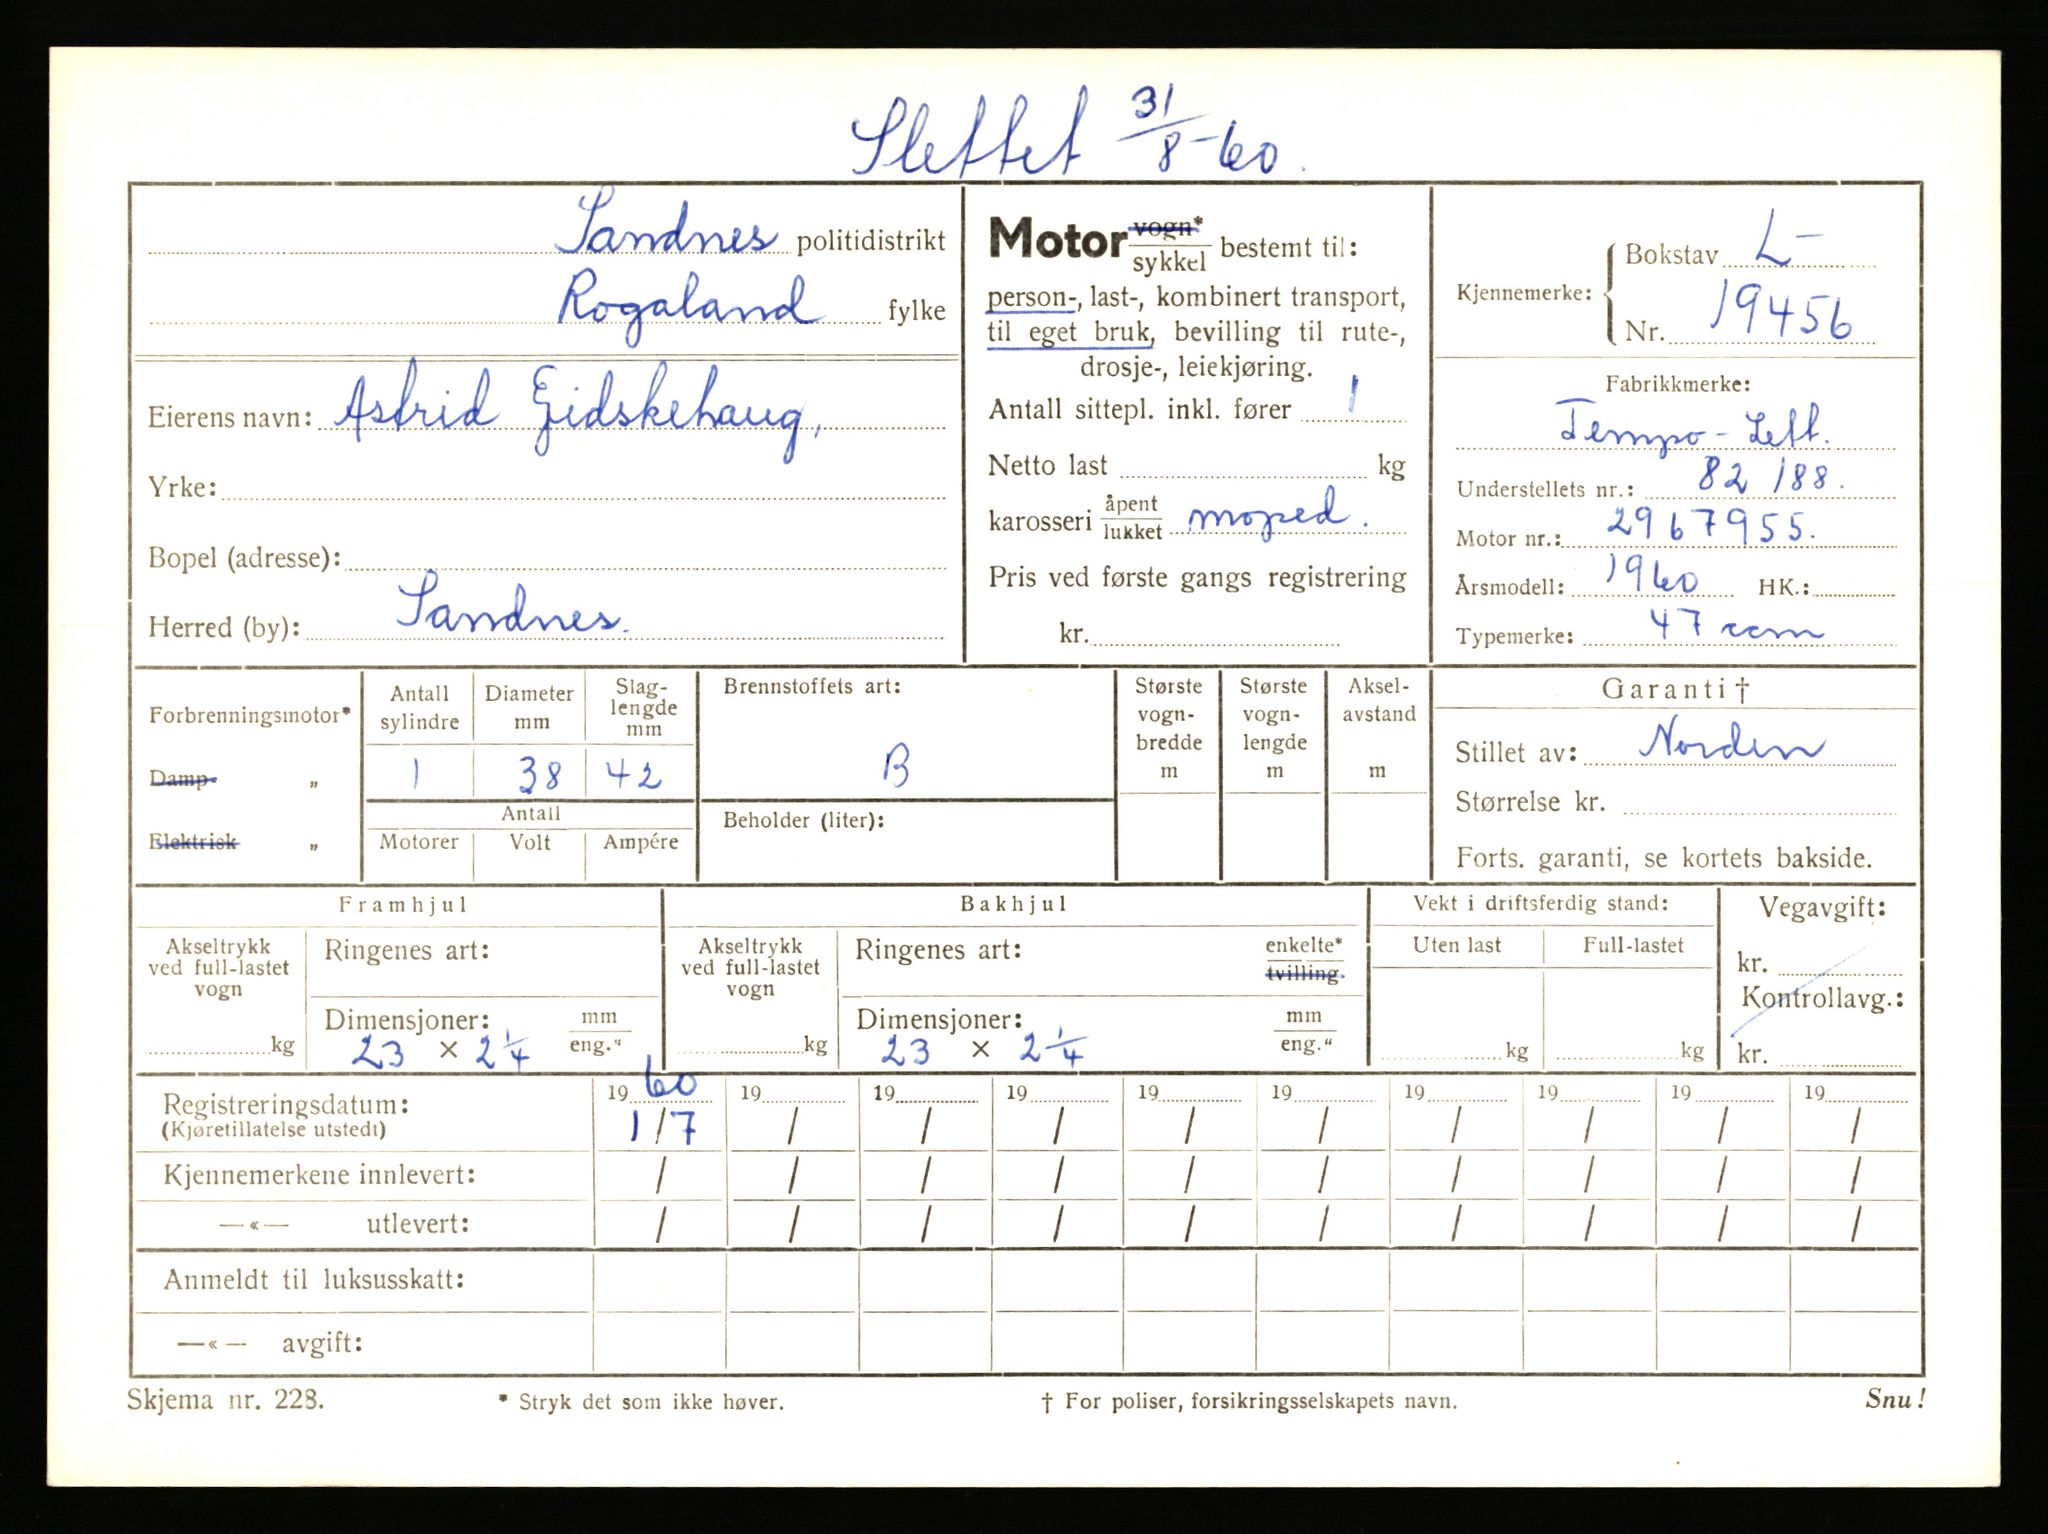 Slettet 31/8-60.
Sandnes politidistrikt
Rogaland fylke
Eierens navn: Astrid Gidskehaug,
Yrke:
Bopel (adresse):
Herred (by): Sandnes.
Motor vogn*/sykkel bestemt til:
person-, last-, kombinert transport,
til eget bruk, bevilling til rute-,
drosje-, leiekjøring.
Antall sittepl. inkl. fører 1
Netto last kg
karosseri åpent/lukket moped.
Pris ved første gangs registrering
kr.
Kjennemerke: Bokstav L-
Nr. 19456
Fabrikkmerke:
Tempo-Lett.
Understellets nr.: 82188.
Motor nr.: 2967955.
Årsmodell: 1960 HK.:
Typemerke: 47 ccm
Forbrenningsmotor*
Damp- „
Elektrisk „
Antall sylindre
Diameter mm
Slag-
lengde
mm
1 38 42
Antall
Motorer Volt Ampére
Brennstoffets art:
B
Beholder (liter):
Største
vogn-
bredde
m
Største
vogn-
lengde
m
Aksel-
avstand
m
Garanti †
Stillet av: Norden
Størrelse kr.
Forts. garanti, se kortets bakside.
Framhjul
Akseltrykk
ved full-lastet
vogn
kg
Ringenes art:
Dimensjoner: mm/eng."
23 × 2 1/4
Bakhjul
Akseltrykk
ved full-lastet
vogn
kg
Ringenes art: enkelte*/tvilling.
Dimensjoner: mm/eng."
23 × 2 1/4
Vekt i driftsferdig stand:
Uten last Full-lastet
kg kg
Vegavgift:
kr.
Kontrollavg.:
kr.
Registreringsdatum: 1960 19 19 19 19 19 19 19 19 19
(Kjøretillatelse utstedt) 1/7 / / / / / / / / /
Kjennemerkene innlevert: / / / / / / / / / /
—«— utlevert: / / / / / / / / / /
Anmeldt til luksusskatt:
—«— avgift:
Skjema nr. 228. * Stryk det som ikke høver. † For poliser, forsikringsselskapets navn. Snu!